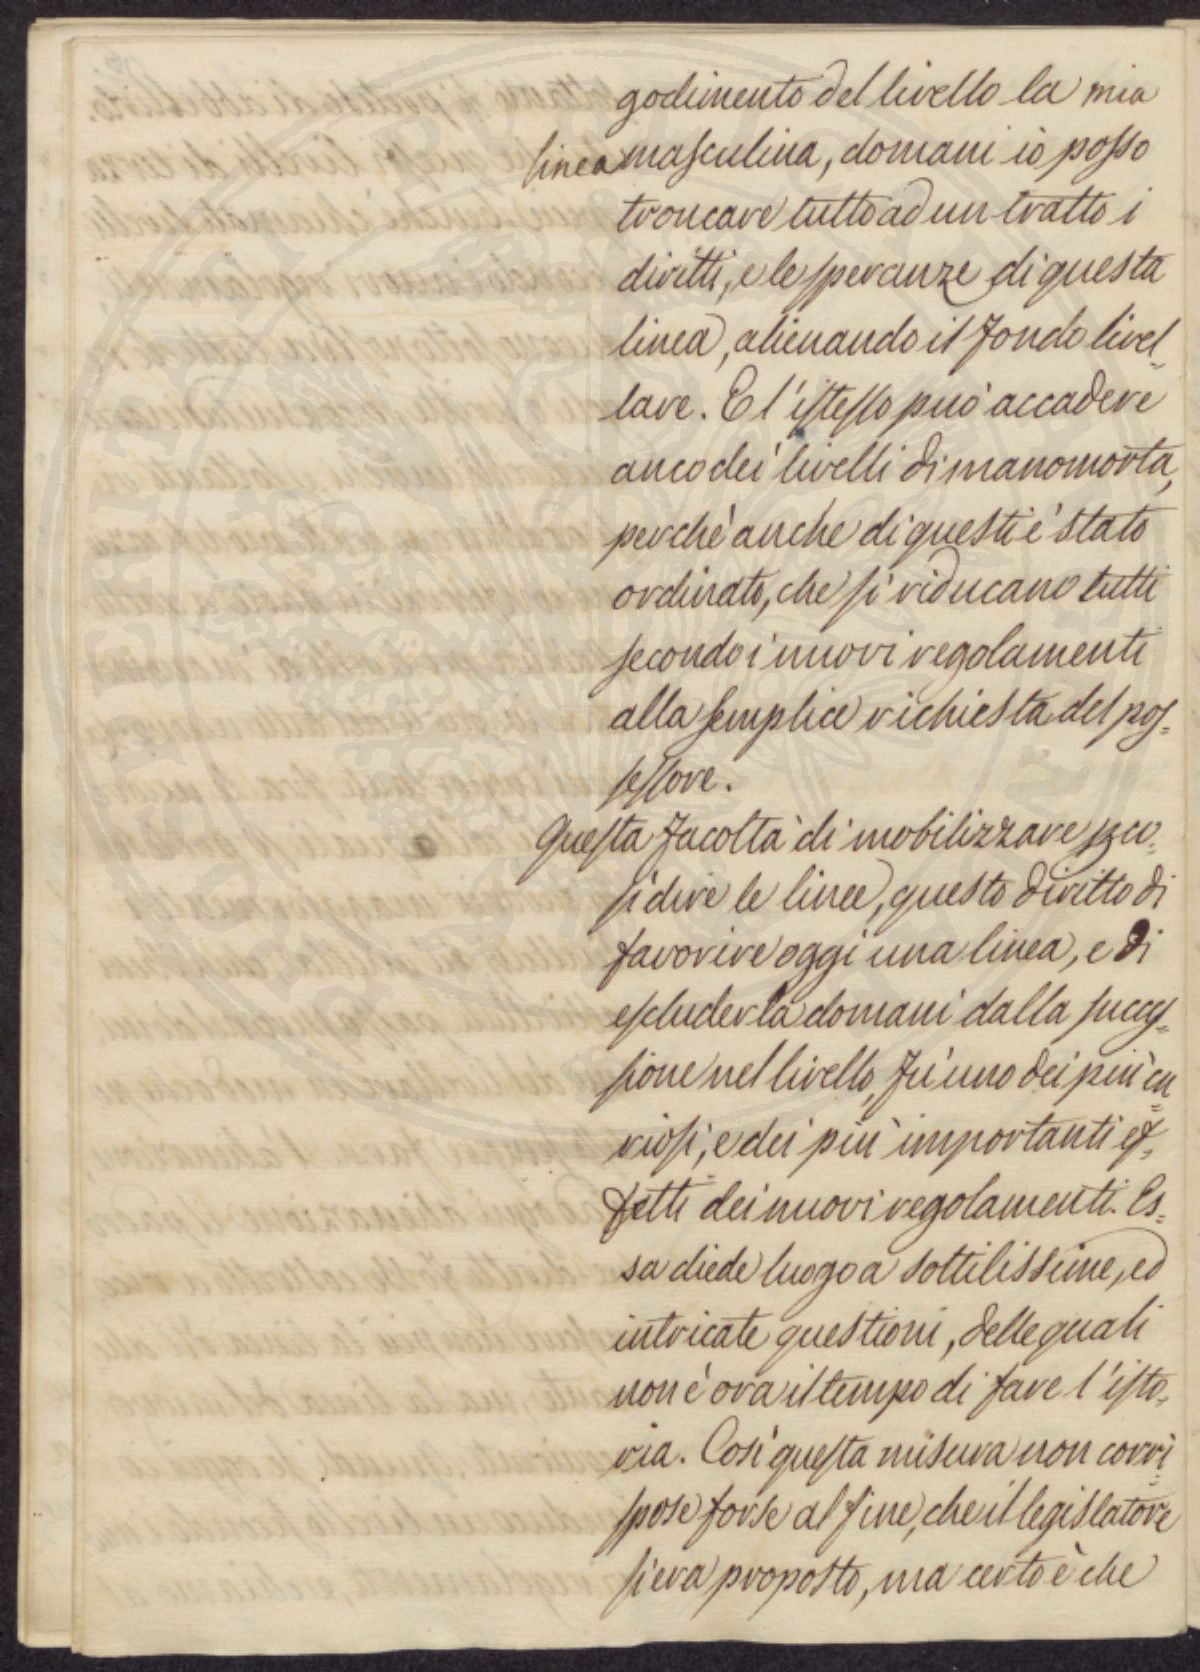 godimento del livello la mia
linea masculina, domani io posso
troncare tutto ad un tratto i
diritti, e le speranze di questa
linea, alienando il fondo livel-
lare. E l'istesso può accadere
anco dei livelli di manomorta,
perchè anche di questi è stato
ordinato, che si riducano tutti
secondo i nuovi regolamenti
alla semplice richiesta del pos-
sessore.
Questa facoltà di mobilizzare per
sì dire le linee, questo diritto di
favorire oggi una linea, e di
escluderla domani dalla succes-
sione nel livello, fù uno dei più cu
riosi, e dei più importanti ef-
fetti dei nuovi regolamenti. Es-
sa diede luogo a sottilissime, ed
intricate questioni, delle quali
non è ora il tempo di fare l'isto-
ria. Così questa misura non corri-
spose forse al fine, che il legislatore
si era proposto, ma certo è che